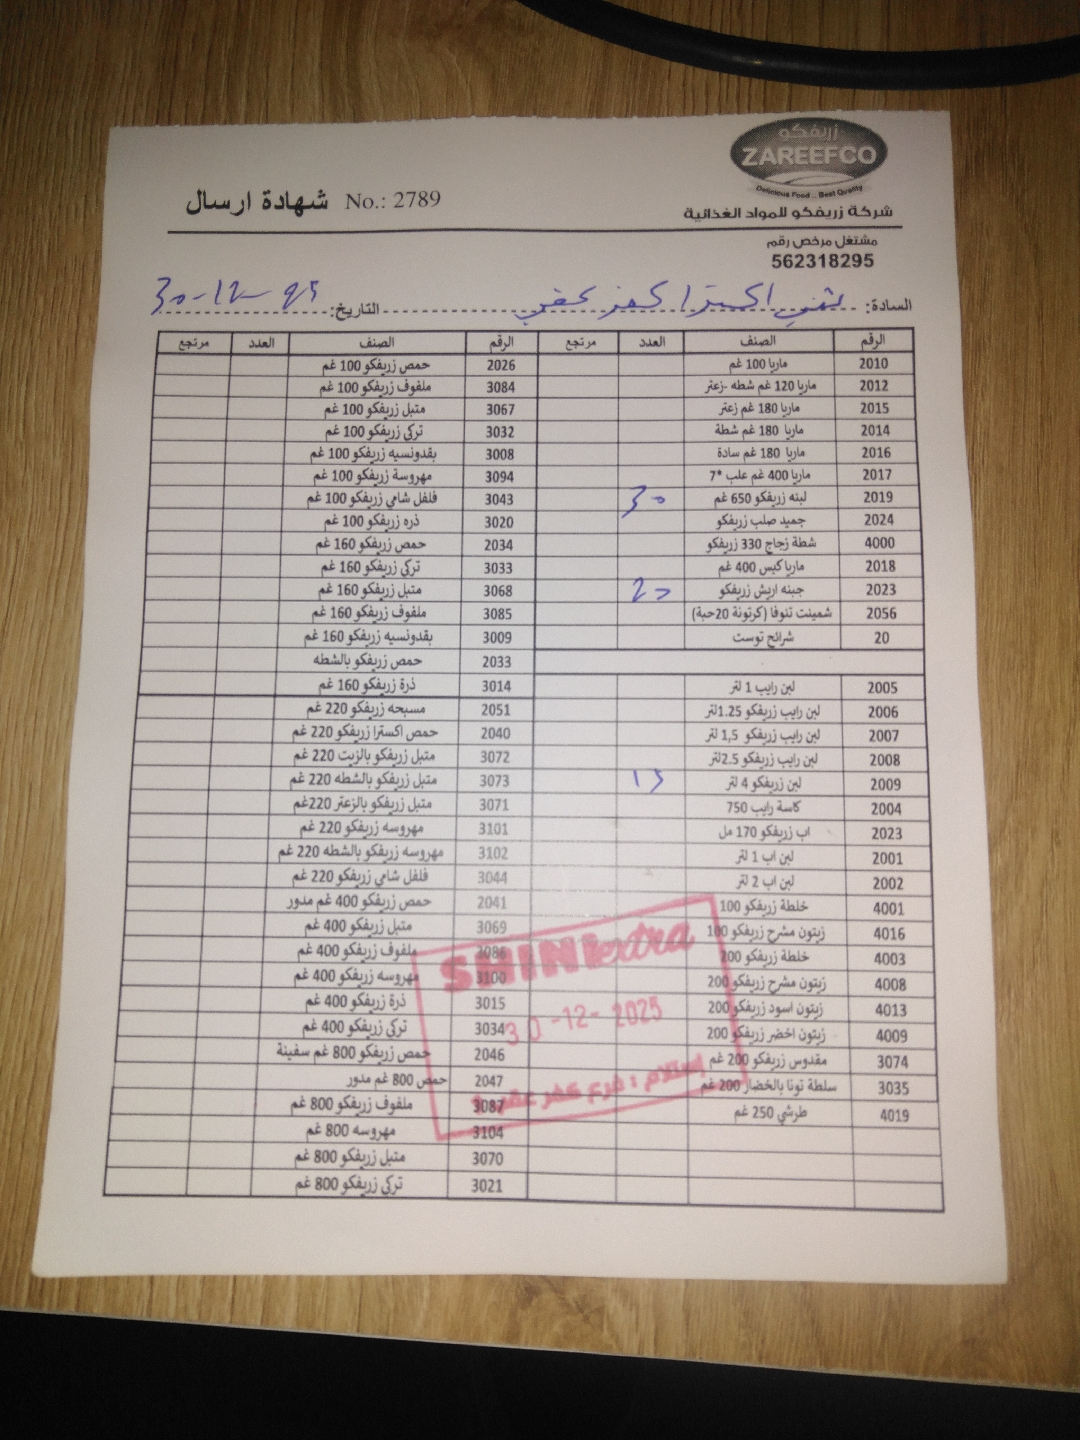 زريفكو
ZAREEFCO
Delicious Food... Best Quality
شركة زريفكو للمواد الغذائية
شهادة ارسال No.: 2789
مشتغل مرخص رقم
562318295
السادة: شني اكسترا كفر عقب التاريخ: 30-12-25
الرقم الصنف العدد مرتجع الرقم الصنف العدد مرتجع
2010 ماريا 100 غم 2026 حمص زريفكو 100 غم
2012 ماريا 120 غم شطه -زعتر 3084 ملفوف زريفكو 100 غم
2015 ماريا 180 غم زعتر 3067 متبل زريفكو 100 غم
2014 ماريا 180 غم شطة 3032 تركي زريفكو 100 غم
2016 ماريا 180 غم سادة 3008 بقدونسيه زريفكو 100 غم
2017 ماريا 400 غم علب *7 3094 مهروسة زريفكو 100 غم
2019 لبنه زريفكو 650 غم 30 3043 فلفل شامي زريفكو 100 غم
2024 جميد صلب زريفكو 3020 ذره زريفكو 100 غم
4000 شطة زجاج 330 زريفكو 2034 حمص زريفكو 160 غم
2018 ماريا كيس 400 غم 3033 تركي زريفكو 160 غم
2023 جبنه اريش زريفكو 20 3068 متبل زريفكو 160 غم
2056 شمينت تنوفا (كرتونة 20حبة) 3085 ملفوف زريفكو 160 غم
20 شرائح توست 3009 بقدونسيه زريفكو 160 غم
2033 حمص زريفكو بالشطه
2005 لبن رايب 1 لتر 3014 ذرة زريفكو 160 غم
2006 لبن رايب زريفكو 1.25لتر 2051 مسبحه زريفكو 220 غم
2007 لبن رايب زريفكو 1,5 لتر 2040 حمص اكسترا زريفكو 220 غم
2008 لبن رايب زريفكو 2.5لتر 3072 متبل زريفكو بالزيت 220 غم
2009 لبن زريفكو 4 لتر 15 3073 متبل زريفكو بالشطه 220 غم
2004 كاسة رايب 750 3071 متبل زريفكو بالزعتر 220غم
2023 اب زريفكو 170 مل 3101 مهروسه زريفكو 220 غم
2001 لبن اب 1 لتر 3102 مهروسه زريفكو بالشطه 220 غم
2002 لبن اب 2 لتر 3044 فلفل شامي زريفكو 220 غم
4001 خلطة زريفكو 100 2041 حمص زريفكو 400 غم مدور
4016 زيتون مشرح زريفكو 100 3069 متبل زريفكو 400 غم
4003 خلطة زريفكو 200 3086 ملفوف زريفكو 400 غم
4008 زيتون مشرح زريفكو 200 3100 مهروسه زريفكو 400 غم
4013 زيتون اسود زريفكو 200 3015 ذرة زريفكو 400 غم
4009 زيتون اخضر زريفكو 200 3034 تركي زريفكو 400 غم
3074 مقدوس زريفكو 200 غم 2046 حمص زريفكو 800 غم سفينة
3035 سلطة تونا بالخضار 200 غم 2047 حمص 800 غم مدور
4019 طرشي 250 غم 3087 ملفوف زريفكو 800 غم
3104 مهروسه 800 غم
3070 متبل زريفكو 800 غم
3021 تركي زريفكو 800 غم
SHINI extra
30-12-2025
إستلام : فرع كفر عقب